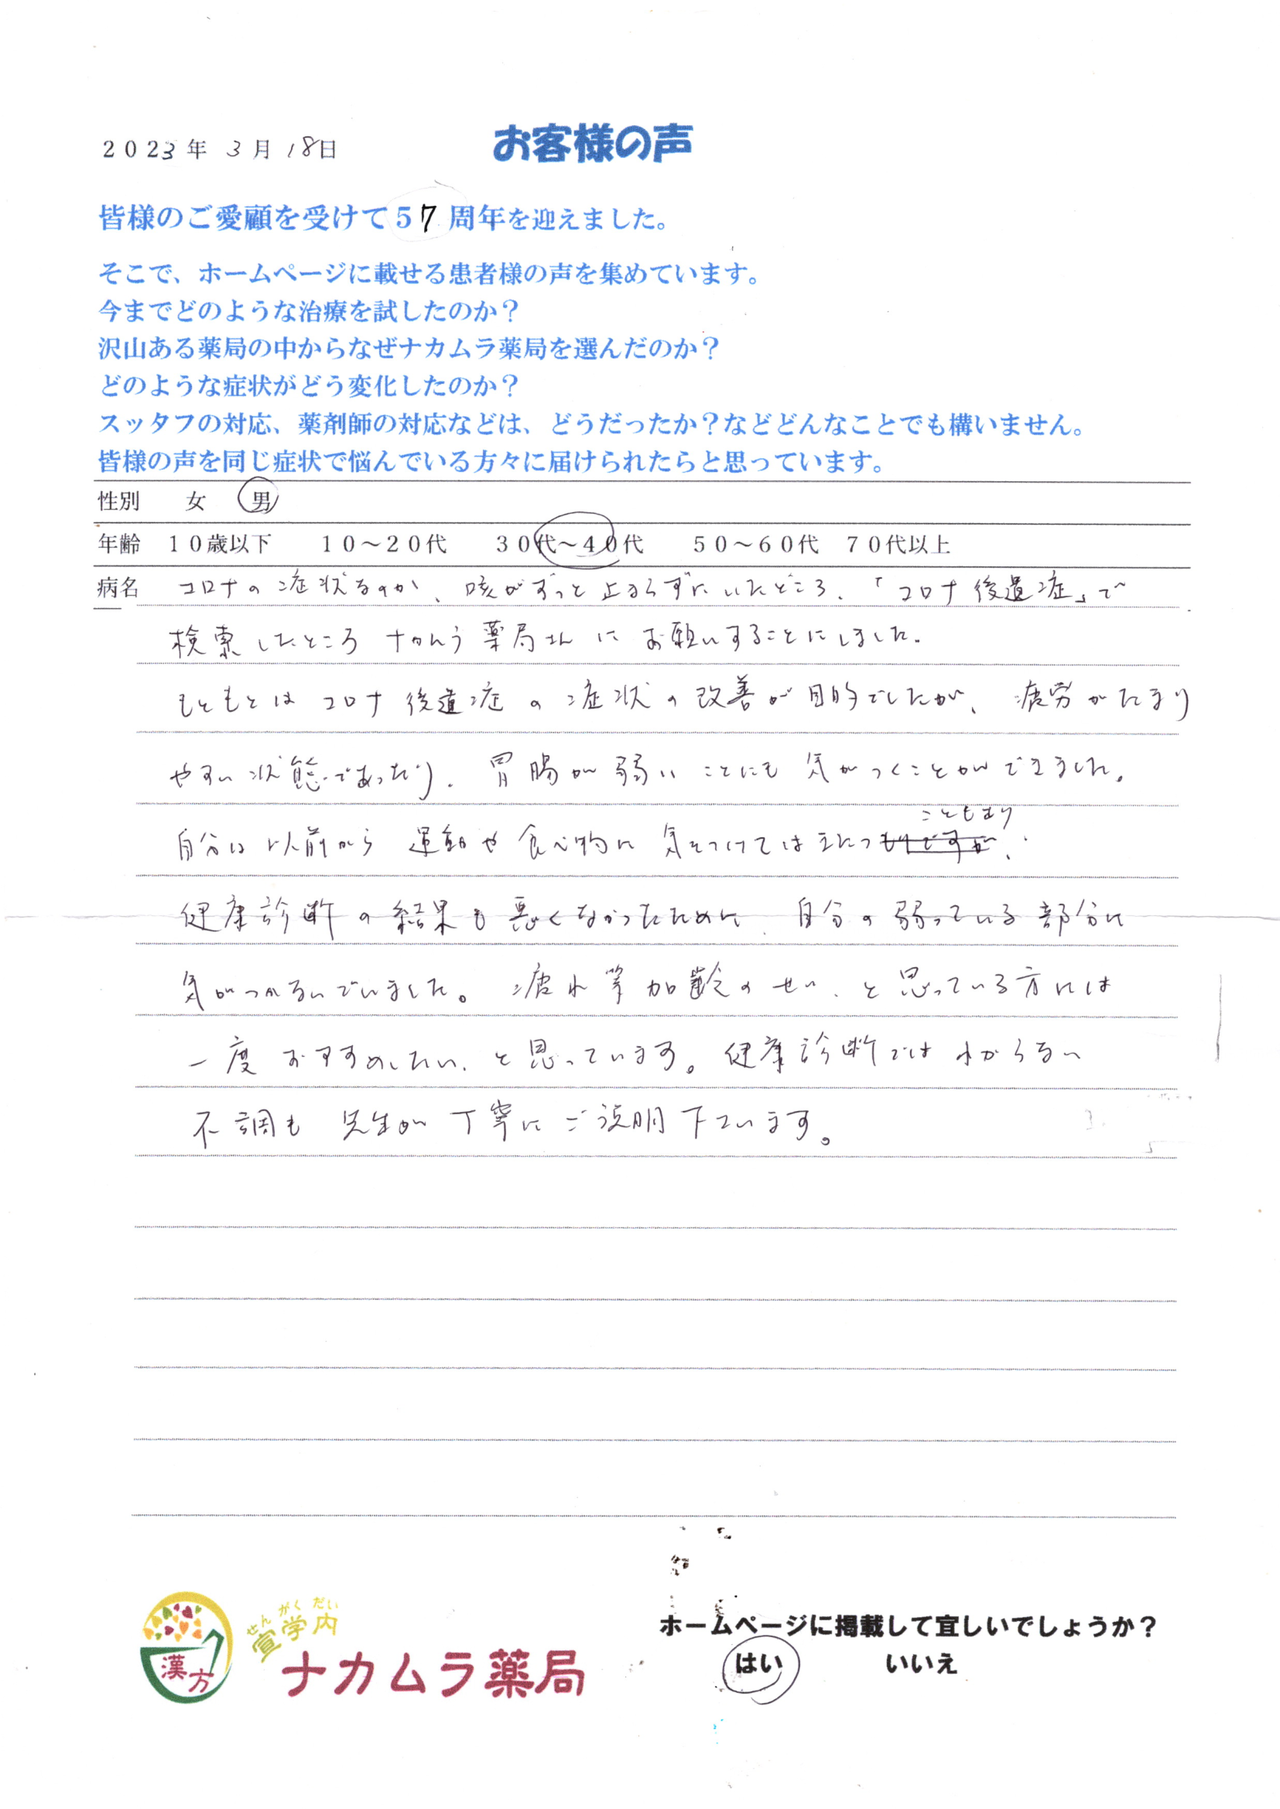 2023年 3月 18日
お客様の声
皆様のご愛顧を受けて57周年を迎えました。
そこで、ホームページに載せる患者様の声を集めています。
今までどのような治療を試したのか？
沢山ある薬局の中からなぜナカムラ薬局を選んだのか？
どのような症状がどう変化したのか？
スッタフの対応、薬剤師の対応などは、どうだったか？などどんなことでも構いません。
皆様の声を同じ症状で悩んでいる方々に届けられたらと思っています。
性別 女 男
年齢 10歳以下 10～20代 30代～40代 50～60代 70代以上
病名 コロナの症状なのか、咳がずっと止まらずにいたところ、「コロナ後遺症」で
検索したところ ナカムラ薬局さんにお願いすることにしました。
もともとはコロナ後遺症の症状の改善が目的でしたが、疲労がたまり
やすい状態であったり、胃腸が弱いことにも気がつくことができました。
こともあり
自分は以前から運動や食べ物に気をつけてはきたつもりですが、
健康診断の結果も悪くなかったために、自分の弱っている部分に
気がつかないでいました。疲れ等加齢のせい、と思っている方には
一度おすすめしたい、と思っています。健康診断ではわからない
不調も先生が丁寧にご説明下さいます。
漢方
せんがくだい
ナカムラ薬局
ホームページに掲載して宜しいでしょうか？
はい いいえ